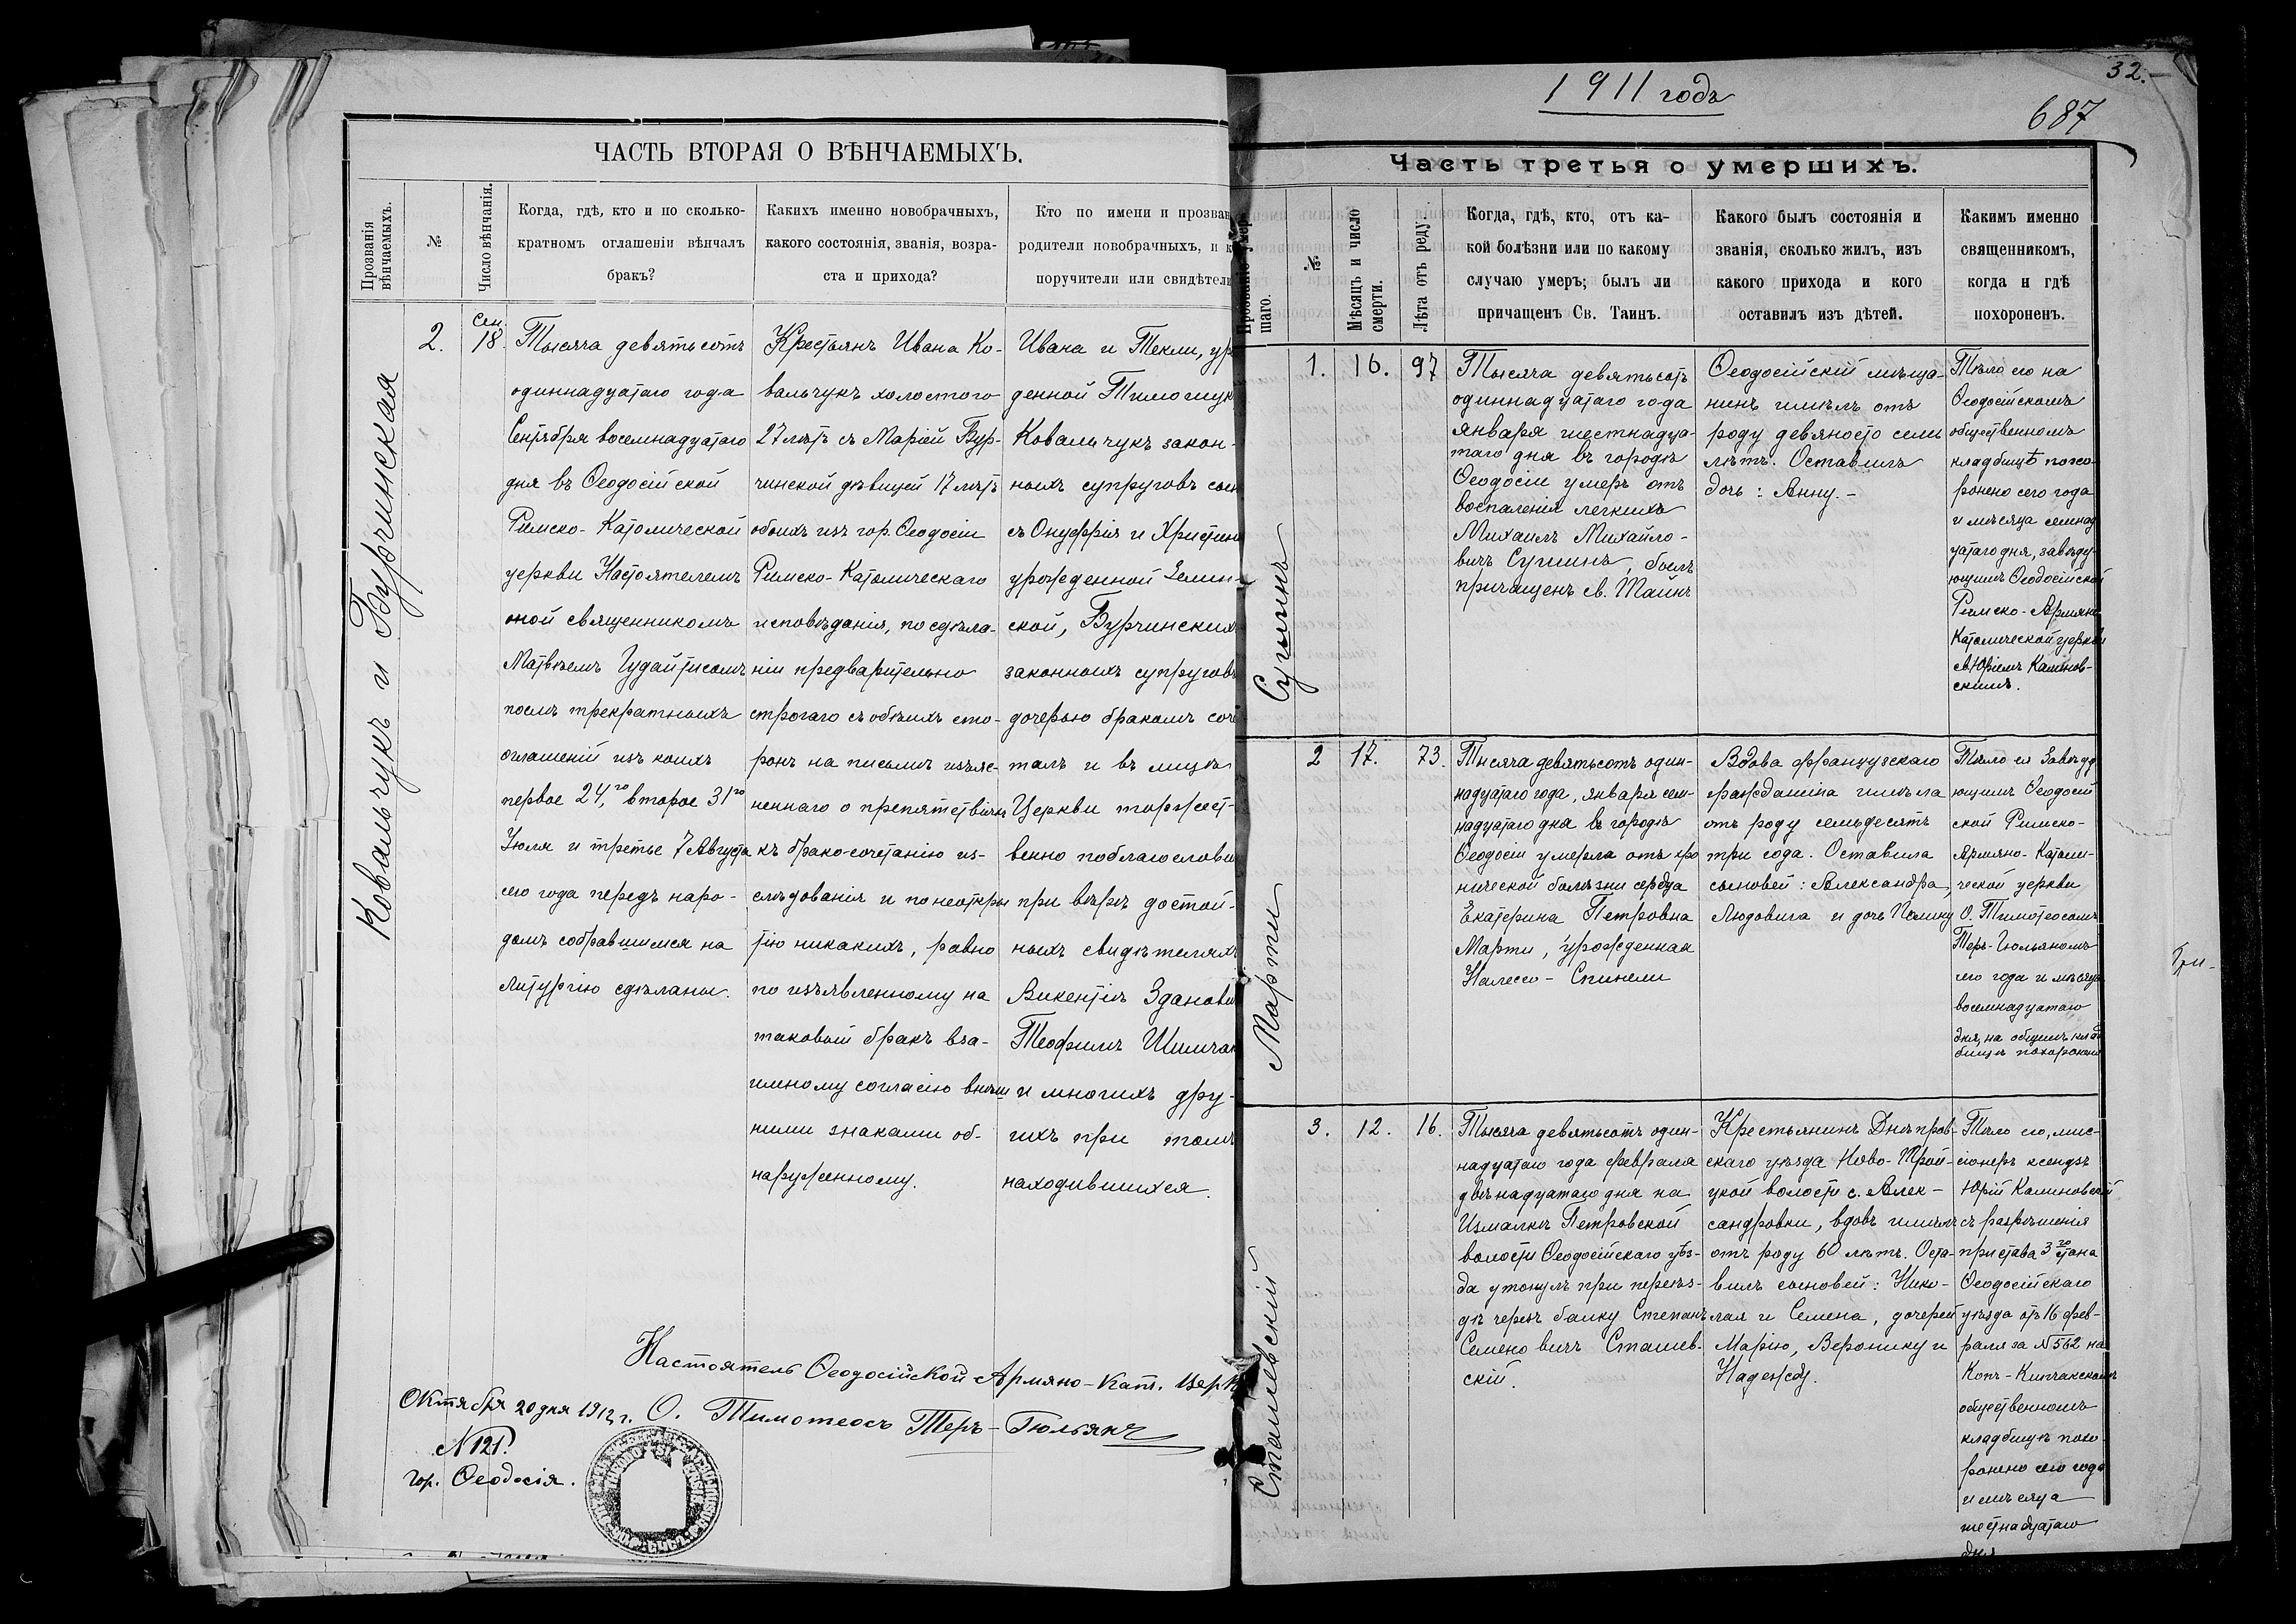 ЧАСТЬ ВТОРАЯ О ВѢНЧАЕМЫХЪ.
Прозванія вѣнчаемыхъ.
№
Число вѣнчанія.
Когда, гдѣ, кто и по сколько-
кратномъ оглашеніи вѣнчалъ
бракъ?
Какихъ именно новобрачныхъ,
какого состоянія, званія, возра-
ста и прихода?
Кто по имени и прозван
родители новобрачныхъ, и к
поручители или свидѣтели
Ковальчукъ и Бурчинская
2.
Сен.
18.
Тысяча девятьсотъ
одиннадцатаго года
Сентября восемнадцатаго
дня въ Ѳеодосійской
Римско-Католической
церкви Настоятелемъ
оной священникомъ
Матвѣемъ Гудайтисомъ
послѣ трекратныхъ
оглашеній изъ коихъ
первое 24,го второе 31го
Іюля и третье 7 Августа
сего года передъ наро-
домъ собравшимся на
литургію сдѣланы.
Крестьянъ Ивана Ко-
вальчукъ холостого
27 лѣтъ съ Маріей Бур-
чинской дѣвицей 17 лѣтъ
обоихъ изъ гор. Ѳеодосіи
Римско-Католическаго
исповѣданія, по сдѣла-
ніи предварительно
строгаго съ обѣихъ сто-
ронъ на письмѣ изъяс-
неннаго о препятствіяхъ
къ брако-сочетанію из-
слѣдованія и по неоткры
тію никакихъ, равно
по изъявленному на
таковый бракъ вза-
имному согласію внѣш
ними знаками об-
наруженному.
Ивана и Текли, уро
денной Тимощук
Ковальчукъ закон-
ныхъ супруговъ сын
съ Онуфрія и Христины
урожденной Зелин-
ской, Бурчинскихъ
законныхъ супруговъ
дочерью бракомъ соче
талъ и въ лицѣ
Церкви торжест-
венно поблагослови
при вѣрѣ достой-
ныхъ свидѣтеляхъ
Викентіѣ Зданови
Теофилѣ Шимчак
и многихъ дру-
гихъ при томъ
находившихся.
Настоятель Ѳеодосійской Армяно-Кат. Церк
Октября 20 дня 1912 г. О. Тимотеосъ Теръ-Гюльянъ
№ 121.
гор. Ѳеодосія.
1911 годъ
32.
687
Часть третья о умершихъ.
Прозваніе умер-
шаго.
№
Мѣсяцъ и число смерти.
Лѣта отъ роду.
Когда, гдѣ, кто, отъ ка-
кой болѣзни или по какому
случаю умеръ; былъ ли
причащенъ Св. Таин.
Какого былъ состоянія и
званія, сколько жилъ, изъ
какого прихода и кого
оставилъ изъ дѣтей.
Какимъ именно
священникомъ,
когда и гдѣ
похороненъ.
Сушинъ
1.
16.
97
Тысяча девятьсотъ
одиннадцатаго года
января шестнадца-
таго дня въ городѣ
Ѳеодосіи умеръ отъ
воспаленія легкихъ
Михаилъ Михайло-
вичъ Сушинъ, былъ
причащенъ св. Таинъ
Ѳеодосійскій мѣща-
нинъ имѣлъ отъ
роду девяносто семь
лѣтъ. Оставилъ
дочь: Анну.-
Тѣло его на
Ѳеодосійскомъ
общественномъ
кладбищѣ похо-
ронено сего года
и мѣсяца семнад
цатаго дня, завѣду-
ющимъ Ѳеодосійской
Римско-Армяно
Католической церкви
св. Юріемъ Калинов-
скимъ.
Марти
2
17.
73.
Тысяча девятьсотъ один-
надцатаго года, января сем-
надцатаго дня въ городѣ
Ѳеодосіи умерла отъ хро
нической болѣзни сердца
Екатерина Петровна
Марти, урожденная
Налессо-Спинели
Вдова французскаго
гражданина имѣла
отъ роду семьдесятъ
три года. Оставила
сыновей: Александра,
Людовига и дочь Полину
Тѣло ея Завѣду
ющимъ Ѳеодосій
ской Римско-
Армяно-Католи-
ческой церкви
О. Тимотеосомъ
Теръ-Гюльяномъ
сего года и мѣсяца
восемнадцатаго
дня, на общемъ клад
бищѣ похоронено
Сташевскій
3.
12.
16.
Тысяча девятьсотъ один-
надцатаго года февраля
двѣнадцатаго дня на
Измалкѣ Петровской
волости Ѳеодосійскаго уѣз-
да утонулъ при переѣз-
дѣ черезъ балку Степанъ
Семеновичъ Сташев-
скій.
Крестьянинъ Днѣпров-
скаго уѣзда Ново-Трои-
цкой волости с. Алек-
сандровки, вдовъ имѣлъ
отъ роду 60 лѣтъ. Оста-
вилъ сыновей: Нико-
лая и Семена, дочерей
Марію, Веронику и
Надежду.
Тѣло его, мис-
сіонеръ ксендзъ
Юрій Калиновскій
съ разрѣшенія
пристава 3го стана
Ѳеодосійскаго
уѣзда отъ 16 фев-
раля за № 562 на
Копъ-Кипчакскомъ
общественномъ
кладбищѣ похо
ронено сего года
и мѣсяца
шестнадцатаго
дня